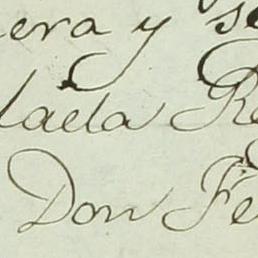 era y se
faela Re
Don Fe